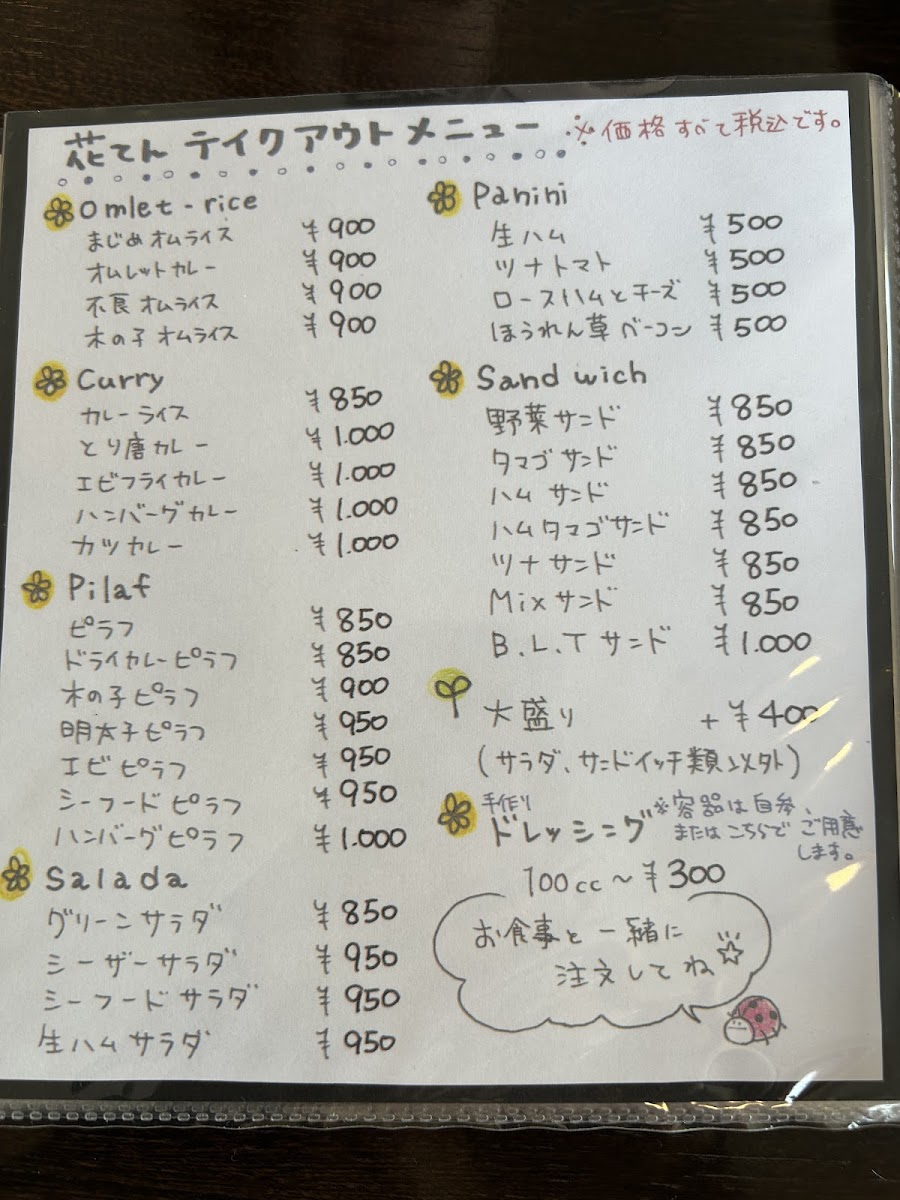 花てん テイクアウトメニュー ※価格すべて税込です。
Omlet-rice
まじめオムライス ¥900
オムレットカレー ¥900
不良オムライス ¥900
木の子オムライス ¥900
Curry
カレーライス ¥850
とり唐カレー ¥1.000
エビフライカレー ¥1.000
ハンバーグカレー ¥1.000
カツカレー ¥1.000
Pilaf
ピラフ ¥850
ドライカレーピラフ ¥850
木の子ピラフ ¥900
明太子ピラフ ¥950
エビピラフ ¥950
シーフードピラフ ¥950
ハンバーグピラフ ¥1.000
Salada
グリーンサラダ ¥850
シーザーサラダ ¥950
シーフードサラダ ¥950
生ハムサラダ ¥950
Panini
生ハム ¥500
ツナトマト ¥500
ロースハムとチーズ ¥500
ほうれん草ベーコン ¥500
Sand wich
野菜サンド ¥850
タマゴサンド ¥850
ハムサンド ¥850
ハムタマゴサンド ¥850
ツナサンド ¥850
Mixサンド ¥850
B.L.Tサンド ¥1.000
大盛り +¥400
(サラダ、サンドイッチ類以外)
手作り
ドレッシング
※容器は自参
またはこちらでご用意
します。
100cc~¥300
お食事と一緒に
注文してね